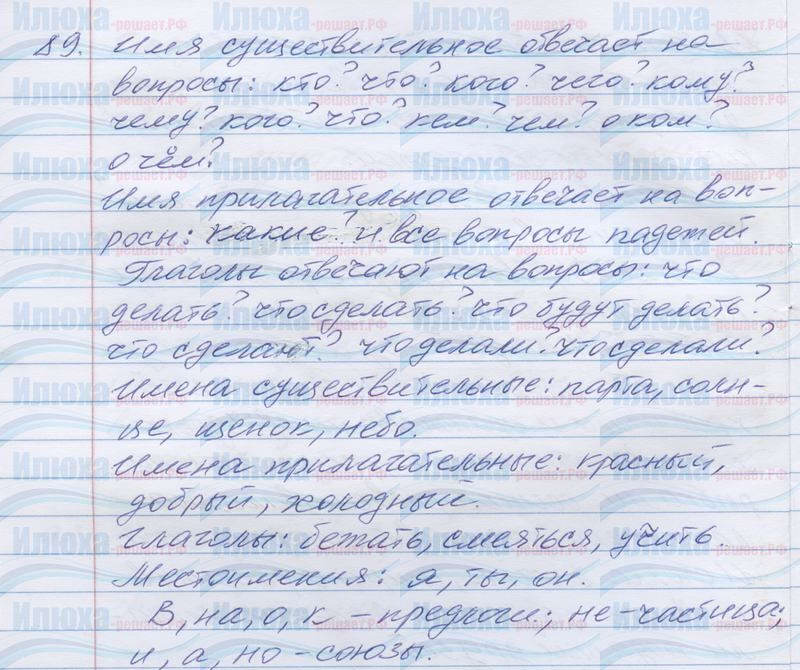 89. Имя существительное отвечает на
вопросы: кто? что? кого? чего? кому?
чему? кого? что? кем? чем? о ком?
о чём?
Имя прилагательное отвечает на воп-
росы: какие? и все вопросы падежей.
Глаголы отвечают на вопросы: что
делать? что сделать? что будут делать?
что сделают? что делали? что сделали?
Имена существительные: парта, солн-
це, щенок, небо.
Имена прилагательные: красный,
добрый, холодный.
Глаголы: бежать, смеяться, учить.
Местоимения: я, ты, он.
В, на, о, к – предлоги; не – частица;
и, а, но – союзы.